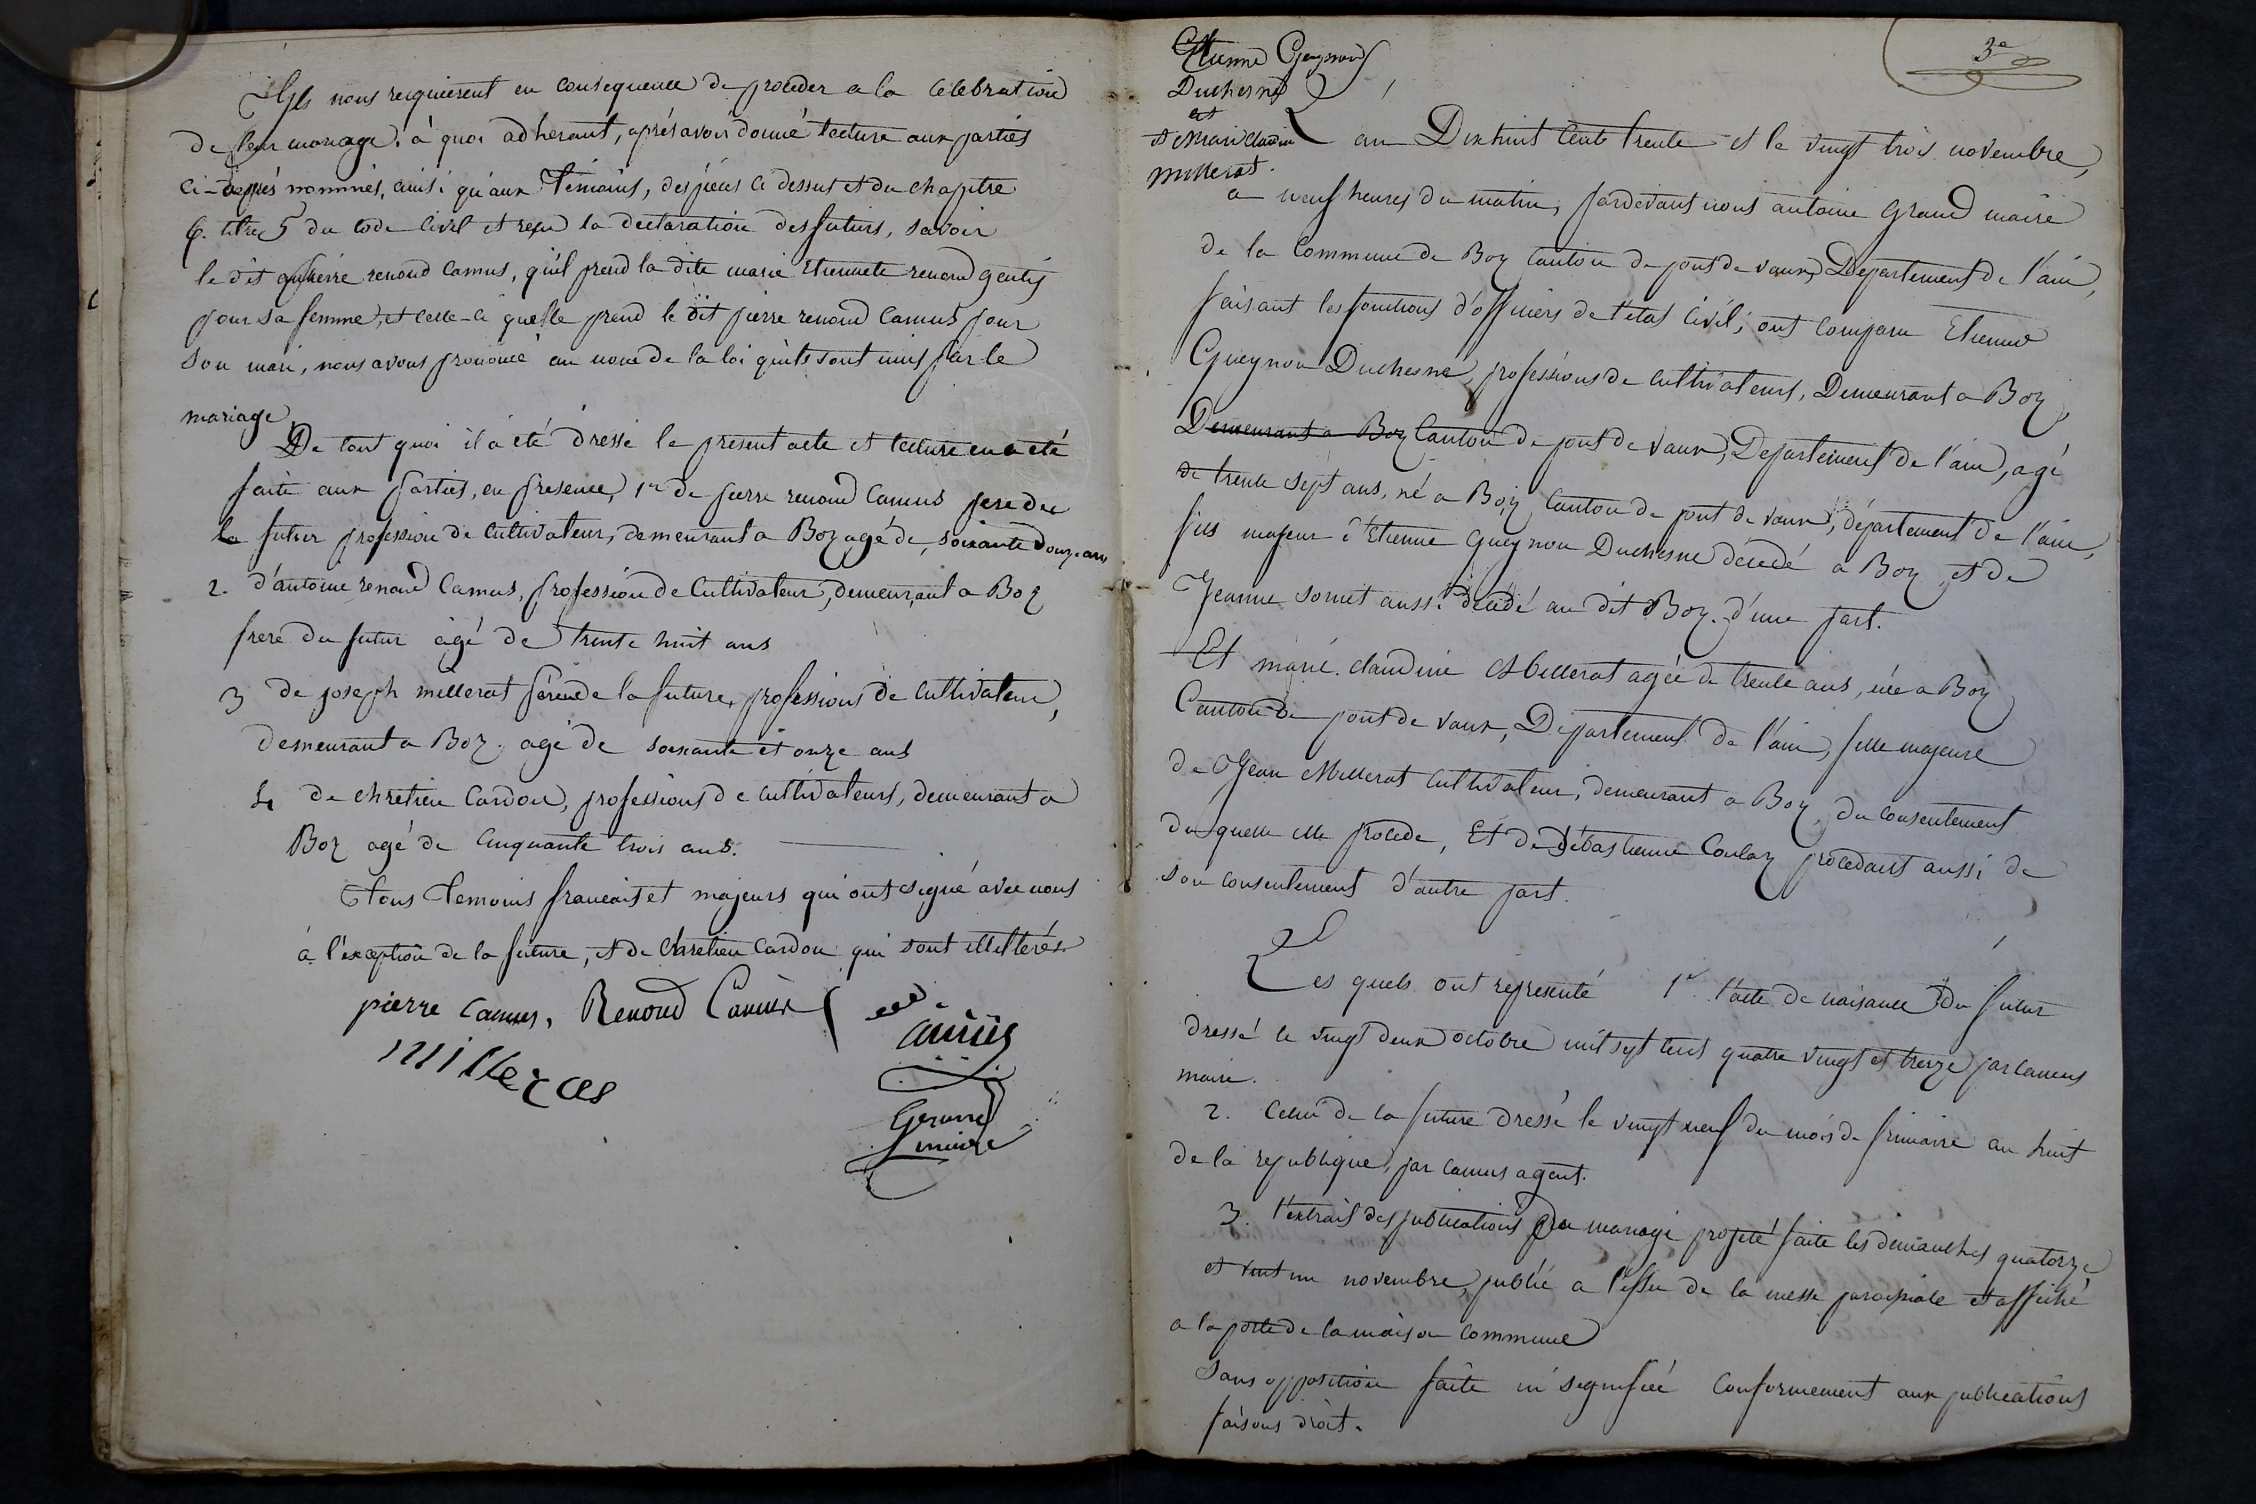 Ils nous requierent en consequence de proceder a la celebration
de leur mariage. à quoi adherant, aprés avoir donné lecture aux parties
ci-aprés nommés, ainsi qu'aux Témoins, des piéces ci dessus et du chapitre
6. titre 5 du code civil et reçu la declaration des futurs, savoir
le dit pierre renoud camus, qu'il prend la dite marie Etiennete renoud gentis
pour sa femme, et celle-ci qu'elle prend le dit pierre renoud camus pour
son mari, nous avons prononcé au nom de la loi qu'ils sont unis par le
mariage
De tout quoi il a été dressé le present acte et lecture en a été
faite aux parties, en presence, 1er de pierre renoud camus pere du
futur profession de cultivateur, demeurant a Boz agé de, soixante douze ans
2. d'antoine renoud camus, profession de cultivateur, demeurant a Boz
frere du futur agé de trente huit ans
3 de joseph millerat de la future, professions de cultivateur,
demeurant a Boz. agé de soixante et onze ans
4 de chretien cardon, professions de cultivateurs, demeurant a
Boz agé de cinquante trois ans.
Tous Temoins francais et majeurs qui ont signé avec nous
à l'exception de la future, et de chretien cardon qui sont illitterés
pierre camus, Renoud Camus
millerat
maire
3e
Etienne Gueynon
Duchesne
et
Marie Claudine
Millerat.
L'an Dix huit cent trente et le vingt trois novembre,
a neuf heures du matin, pardevant nous antoine Grand maire
de la commune de Boz canton de pont de vaux, Departement de l'ain,
faisant les fonctions d'officiers de l'état civil, ont comparu Etienne
Gueynon Duchesne, professions de cultivateurs, Demeurant a Boz,
Demeurant a Boz Canton de pont de vaux, Departement de l'ain, agé
de trente sept ans, né a Boz, canton de pont de vaux, département de l'ain,
fils majeur d'Etienne Gueynon Duchesne décédé a Boz et de
Jeanne sornet aussi décédé au dit Boz. d'une part.
Et marie claudine Millerat agée de trente ans, née a Boz
Canton de pont de vaux, Departement de l'ain, fille majeure
de Jean Millerat cultivateur, demeurant a Boz, du consentement
du quelle elle procede, Et de Sébastienne Coulaz procedant aussi de
son consentement d'autre part.
Les quels ont représenté 1er l'acte de naisance du futur
dressé le vingt deux octobre mil sept cent quatre vingt et treize par camus
maire.
2. celui de la future dressé le vingt neuf du mois de frimaire an huit
de la republique, par camus agent.
3. l'extrait des publications du mariage projeté faite les dimanches quatorze
et vint un novembre, publié a l'issu de la messe paroissiale et affiché
a la porte de la maison commune
sans opposition faite ni signifiée conformement aux publications
faisons droit.